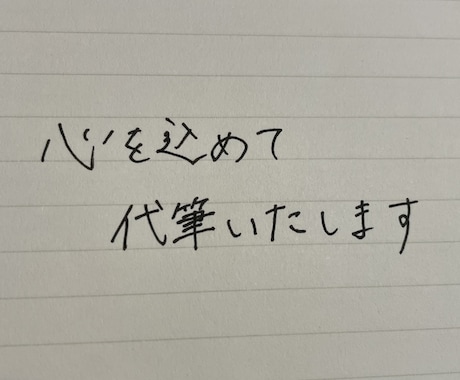 心を込めて
代筆いたします